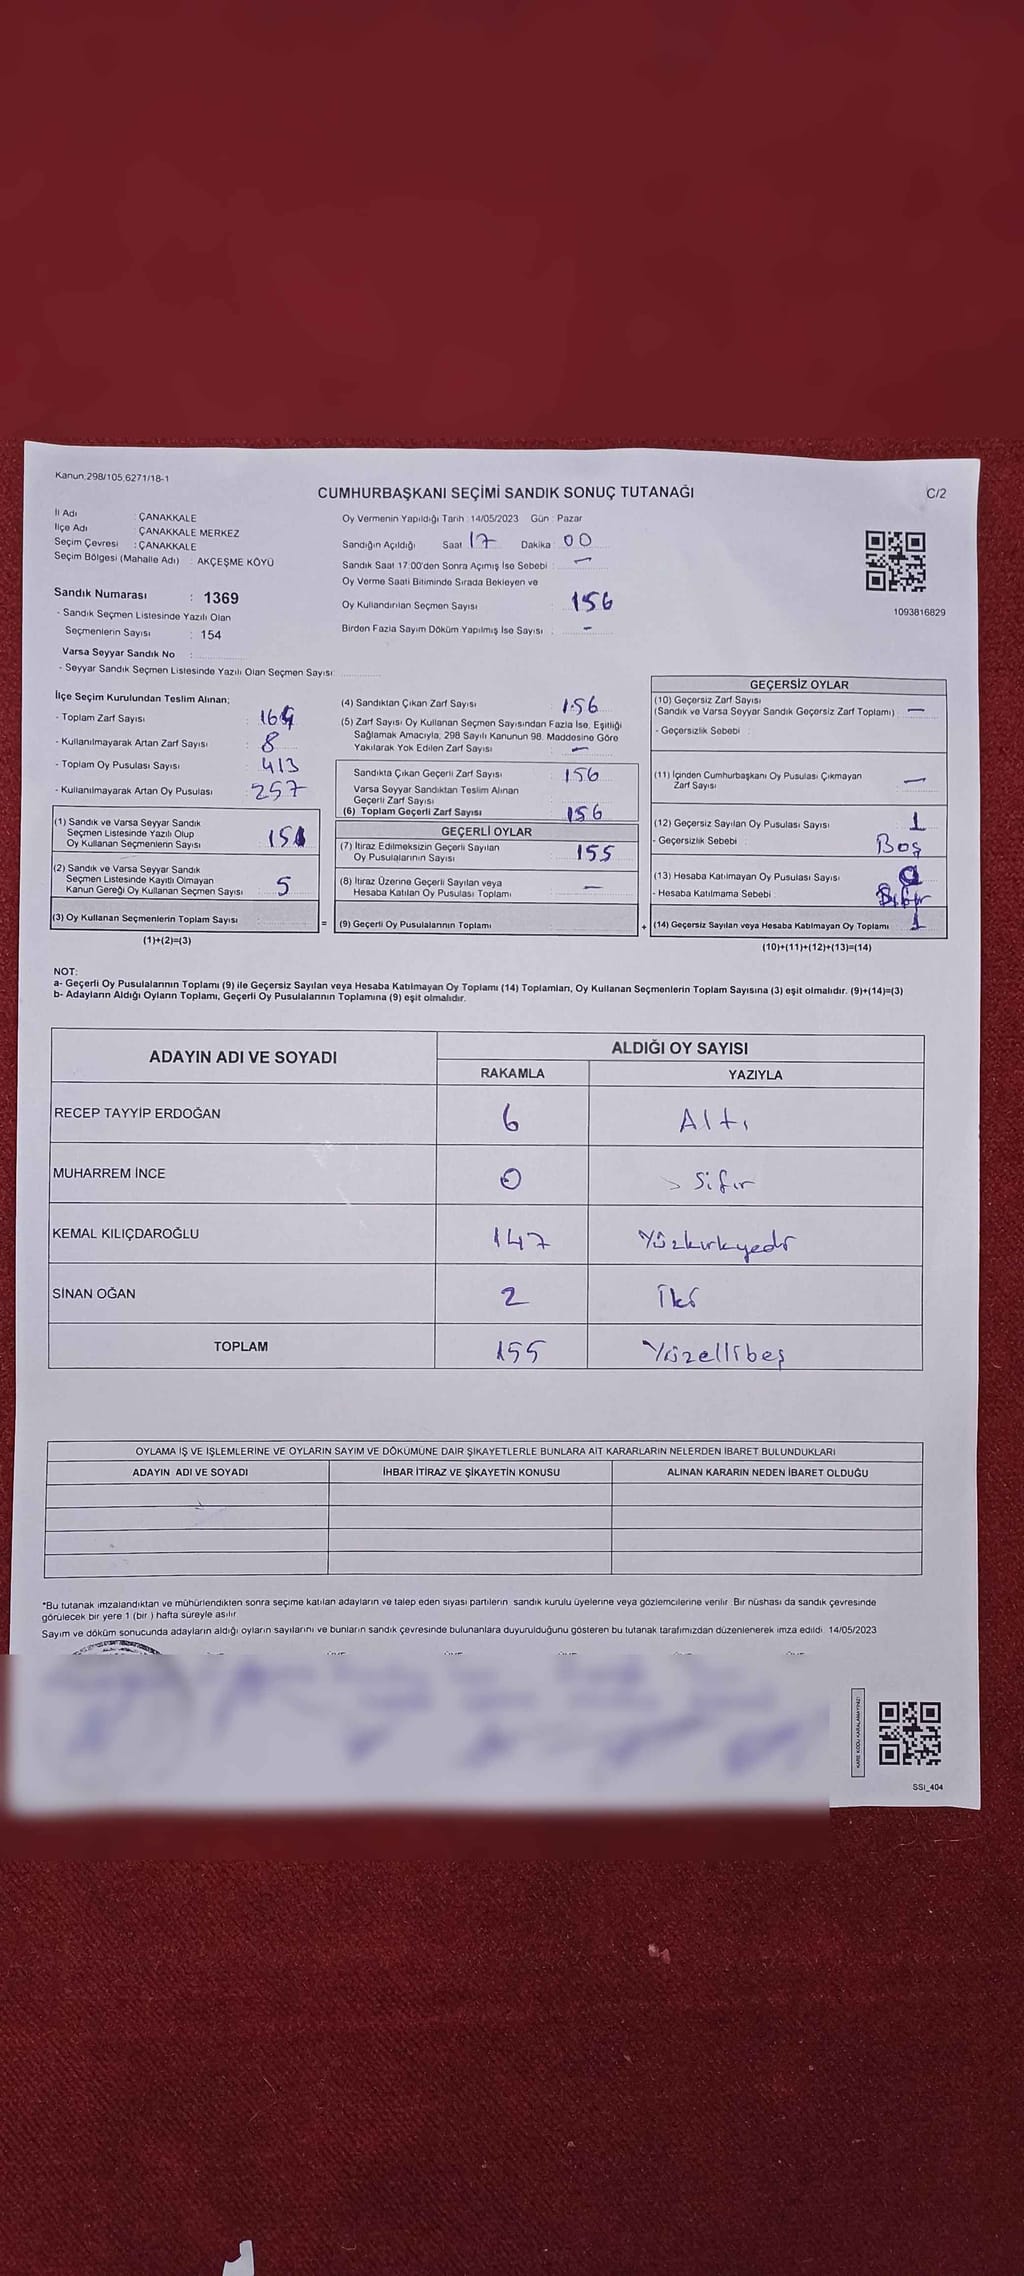 Kanun.298/105,6271/18-1
CUMHURBAŞKANI SEÇİMİ SANDIK SONUÇ TUTANAĞI
C/2
İl Adı : ÇANAKKALE
İlçe Adı : ÇANAKKALE MERKEZ
Seçim Çevresi : ÇANAKKALE
Seçim Bölgesi (Mahalle Adı) : AKÇEŞME KÖYÜ
Sandık Numarası : 1369
- Sandık Seçmen Listesinde Yazılı Olan
Seçmenlerin Sayısı : 154
Varsa Seyyar Sandık No :
- Seyyar Sandık Seçmen Listesinde Yazılı Olan Seçmen Sayısı:
Oy Vermenin Yapıldığı Tarih : 14/05/2023 Gün : Pazar
Sandığın Açıldığı Saat 17 Dakika : 00
Sandık Saat 17:00'den Sonra Açımış İse Sebebi : —
Oy Verme Saati Bitiminde Sırada Bekleyen ve
Oy Kullandırılan Seçmen Sayısı : 156
Birden Fazla Sayım Döküm Yapılmış İse Sayısı : -
1093816829
İlçe Seçim Kurulundan Teslim Alınan;
- Toplam Zarf Sayısı : 164
- Kullanılmayarak Artan Zarf Sayısı : 8
- Toplam Oy Pusulası Sayısı : 413
- Kullanılmayarak Artan Oy Pusulası : 257
(1) Sandık ve Varsa Seyyar Sandık
Seçmen Listesinde Yazılı Olup
Oy Kullanan Seçmenlerin Sayısı : 151
(2) Sandık ve Varsa Seyyar Sandık
Seçmen Listesinde Kayıtlı Olmayan
Kanun Gereği Oy Kullanan Seçmen Sayısı : 5
(3) Oy Kullanan Seçmenlerin Toplam Sayısı :
(1)+(2)=(3)
=
(4) Sandıktan Çıkan Zarf Sayısı : 156
(5) Zarf Sayısı Oy Kullanan Seçmen Sayısından Fazla İse, Eşitliği
Sağlamak Amacıyla, 298 Sayılı Kanunun 98. Maddesine Göre
Yakılarak Yok Edilen Zarf Sayısı : —
Sandıkta Çıkan Geçerli Zarf Sayısı : 156
Varsa Seyyar Sandıktan Teslim Alınan
Geçerli Zarf Sayısı :
(6) Toplam Geçerli Zarf Sayısı : 156
GEÇERLİ OYLAR
(7) İtiraz Edilmeksizin Geçerli Sayılan
Oy Pusulalarının Sayısı : 155
(8) İtiraz Üzerine Geçerli Sayılan veya
Hesaba Katılan Oy Pusulası Toplamı : —
(9) Geçerli Oy Pusulalarının Toplamı :
+
GEÇERSİZ OYLAR
(10) Geçersiz Zarf Sayısı
(Sandık ve Varsa Seyyar Sandık Geçersiz Zarf Toplamı) : —
- Geçersizlik Sebebi :
(11) İçinden Cumhurbaşkanı Oy Pusulası Çıkmayan
Zarf Sayısı : —
(12) Geçersiz Sayılan Oy Pusulası Sayısı : 1
- Geçersizlik Sebebi : Boş
(13) Hesaba Katılmayan Oy Pusulası Sayısı :
- Hesaba Katılmama Sebebi :
(14) Geçersiz Sayılan veya Hesaba Katılmayan Oy Toplamı : 1
(10)+(11)+(12)+(13)=(14)
NOT:
a- Geçerli Oy Pusulalarının Toplamı (9) ile Geçersiz Sayılan veya Hesaba Katılmayan Oy Toplamı (14) Toplamları, Oy Kullanan Seçmenlerin Toplam Sayısına (3) eşit olmalıdır. (9)+(14)=(3)
b- Adayların Aldığı Oyların Toplamı, Geçerli Oy Pusulalarının Toplamına (9) eşit olmalıdır.
ADAYIN ADI VE SOYADI
ALDIĞI OY SAYISI
RAKAMLA YAZIYLA
RECEP TAYYİP ERDOĞAN 6 Altı
MUHARREM İNCE 0 Sıfır
KEMAL KILIÇDAROĞLU 147 Yüzkırkyedi
SİNAN OĞAN 2 İki
TOPLAM 155 Yüzellibeş
OYLAMA İŞ VE İŞLEMLERİNE VE OYLARIN SAYIM VE DÖKÜMÜNE DAİR ŞİKAYETLERLE BUNLARA AİT KARARLARIN NELERDEN İBARET BULUNDUKLARI
ADAYIN ADI VE SOYADI İHBAR İTİRAZ VE ŞİKAYETİN KONUSU ALINAN KARARIN NEDEN İBARET OLDUĞU
*Bu tutanak imzalandıktan ve mühürlendikten sonra seçime katılan adayların ve talep eden siyasi partilerin sandık kurulu üyelerine veya gözlemcilerine verilir. Bir nüshası da sandık çevresinde
görülecek bir yere 1 (bir ) hafta süreyle asılır.
Sayım ve döküm sonucunda adayların aldığı oyların sayılarını ve bunların sandık çevresinde bulunanlara duyurulduğunu gösteren bu tutanak tarafımızdan düzenlenerek imza edildi. 14/05/2023
KARE KODU KARALAMAYINIZ!
SSI_404